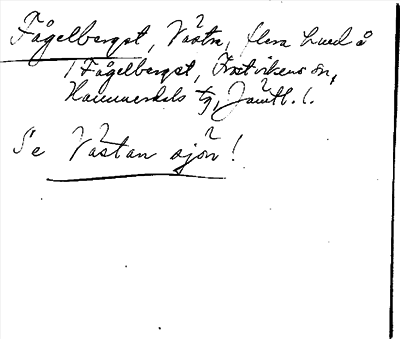 Fågelberget, Västra, flera hmd å
/ Fågelberget, Frostvikens sn,
Hammerdals tg, Jämtl. l.
Se Västansjön!